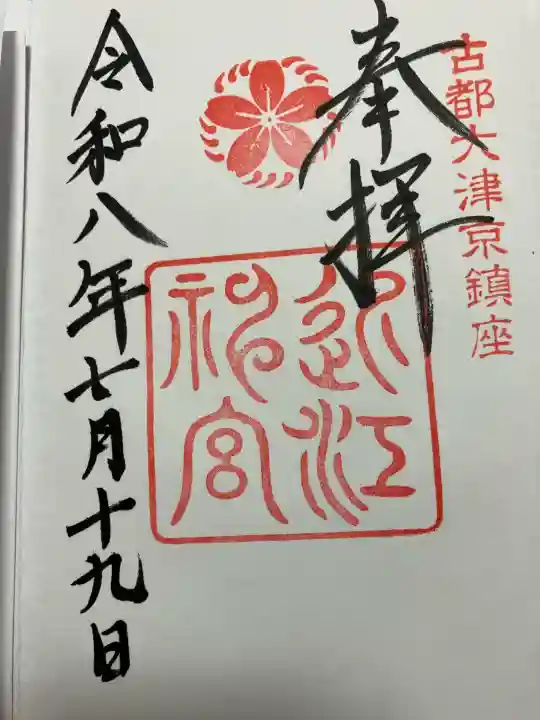 古都大津京鎮座
奉拝
近江
神宮
令和八年七月十九日